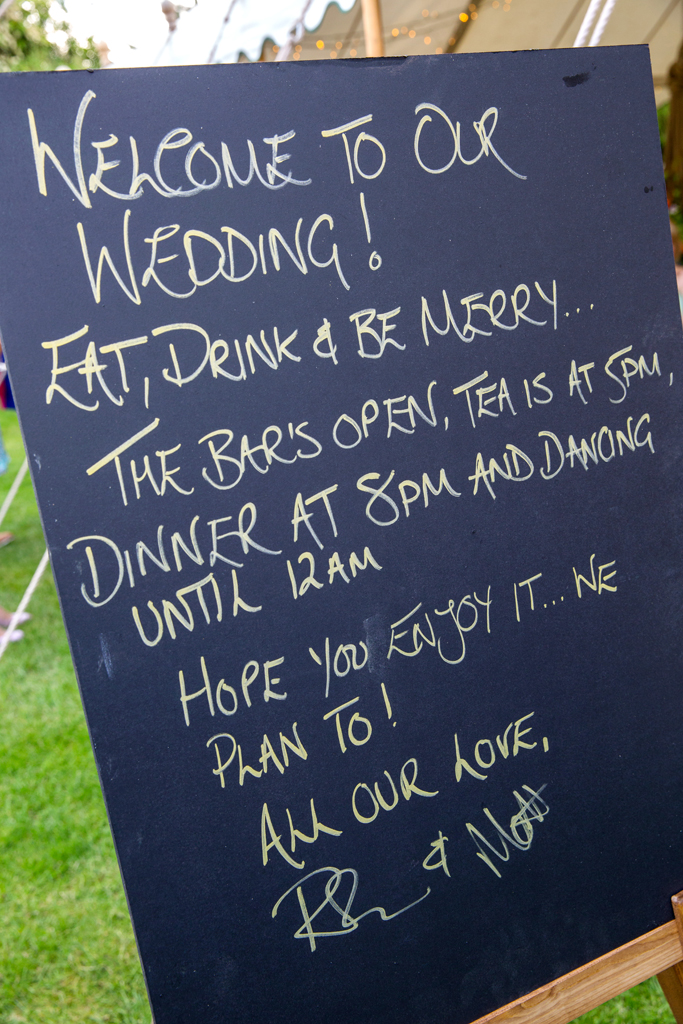 WELCOME TO OUR
WEDDING!
EAT, DRINK & BE MERRY...
THE BAR'S OPEN, TEA IS AT 5PM,
DINNER AT 8PM AND DANCING
UNTIL 12AM
HOPE YOU ENJOY IT... WE
PLAN TO!
ALL OUR LOVE,
& Matt